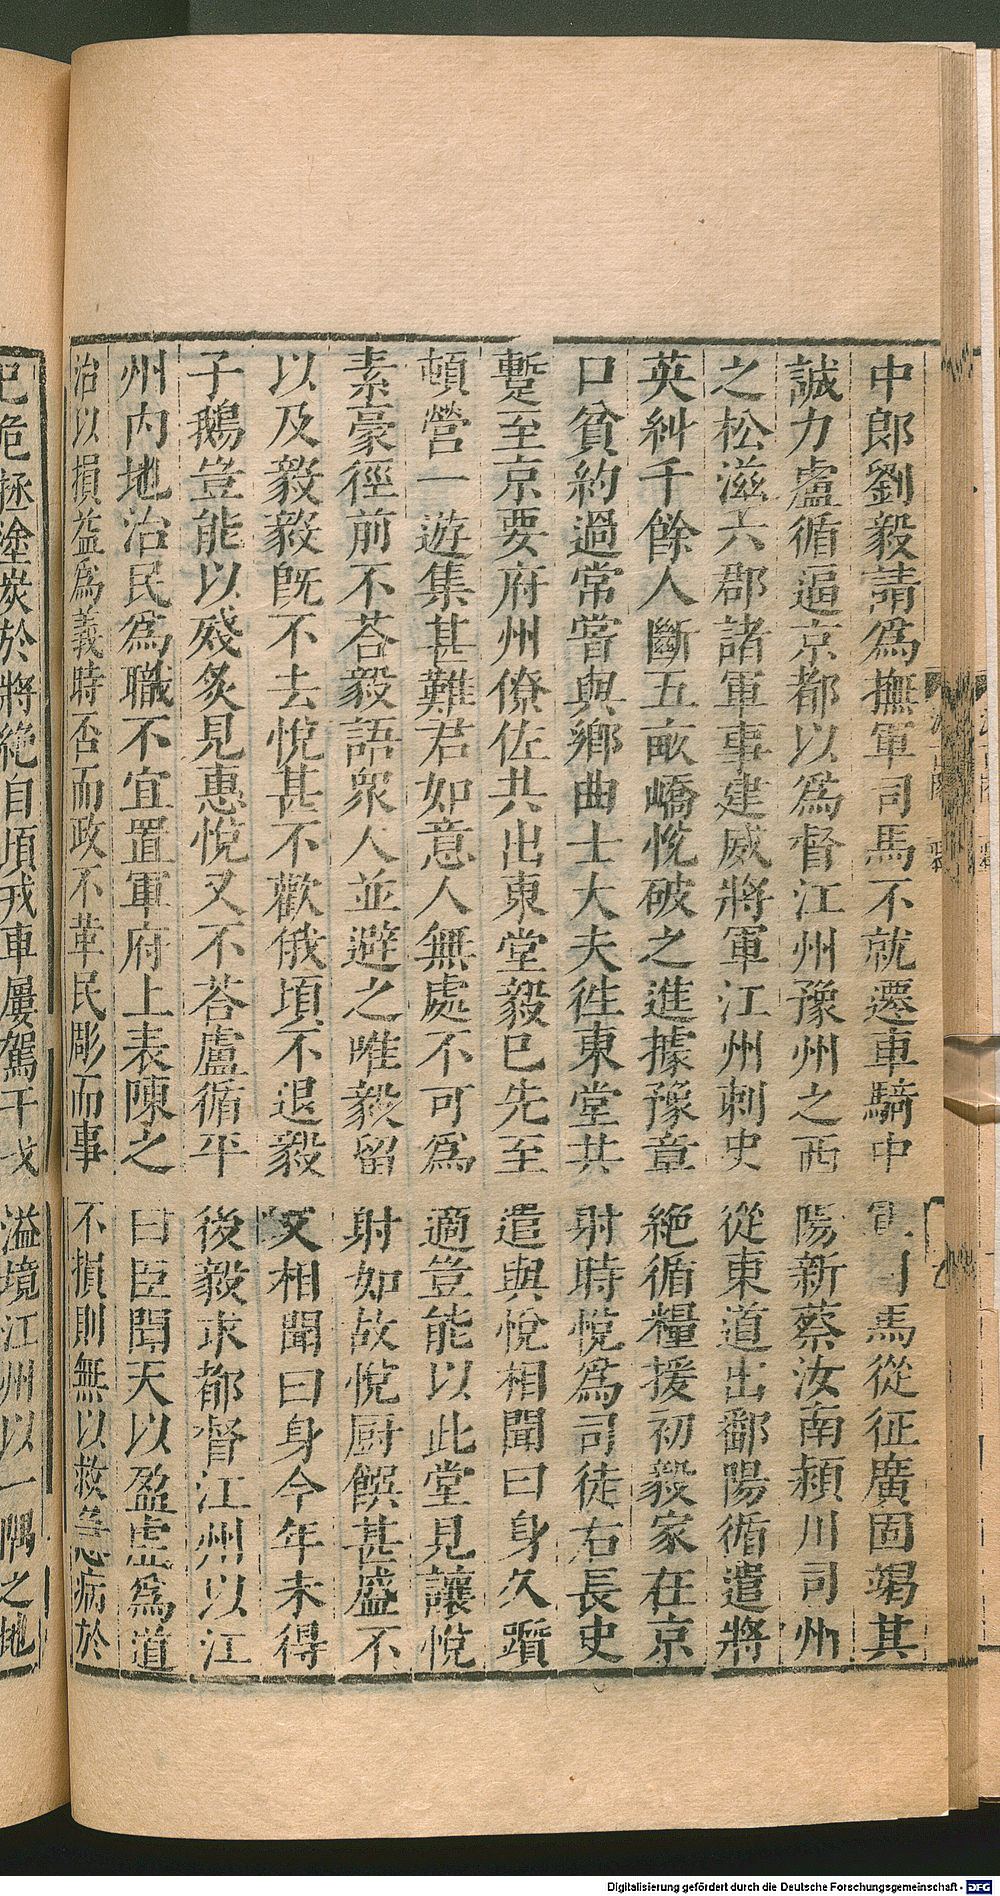 中郎劉毅請爲撫軍司馬不就遷車騎中軍司馬從征廣固竭其
誠力盧循逼京都以爲督江州豫州之西陽新蔡汝南潁川司州
之松滋六郡諸軍事建威將軍江州刺史從東道出鄱陽循遣將
英糾千餘人斷五畝嶠悅破之進據豫章絕循糧援初毅家在京
口貧約過常嘗與鄉曲士大夫徃東堂共射時悅爲司徒右長史
蹔至京要府州僚佐共出東堂毅已先至遣與悅相聞曰身久躓
頓營一遊集甚難君如意人無處不可爲適豈能以此堂見讓悅
素豪徑前不荅毅語衆人並避之唯毅留射如故悅厨饌甚盛不
以及毅毅旣不去悅甚不歡俄頃不退毅又相聞曰身今年未得
子鵝豈能以殘炙見惠悅又不荅盧循平後毅求都督江州以江
州内地治民爲職不宜置軍府上表陳之曰臣聞天以盈虛爲道
治以損益爲義時否而政不革民彫而事不損則無以救急病於
已危拯塗炭於將絕自頃戎車屢駕干戈溢境江州以一隅之地
Digitalisierung gefördert durch die Deutsche Forschungsgemeinschaft - DFG